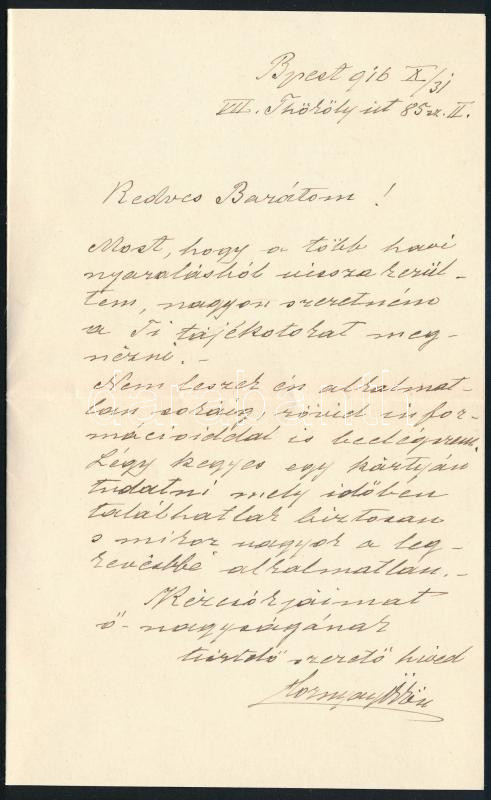 Bpest 916 X/31
VII. Thököly út 85 sz. II.
Kedves Barátom!
Most, hogy a több havi
nyaralásból vissza kerül-
tem, nagyon szeretném
a Ti tájékotokat meg-
nézni.-
Nem leszek én alkalmat-
lan sokáig, rövid infor-
mációiddal is beelégszem.
Légy kegyes egy kártyán
tudatni mely időben
talállhatlak biztosan
s mikor vagyok a leg-
kevésbbé alkalmatlan.-
Kézcsókjaimat
ő-nagyságának
tisztelő szerető híved
Hornyay Ödön